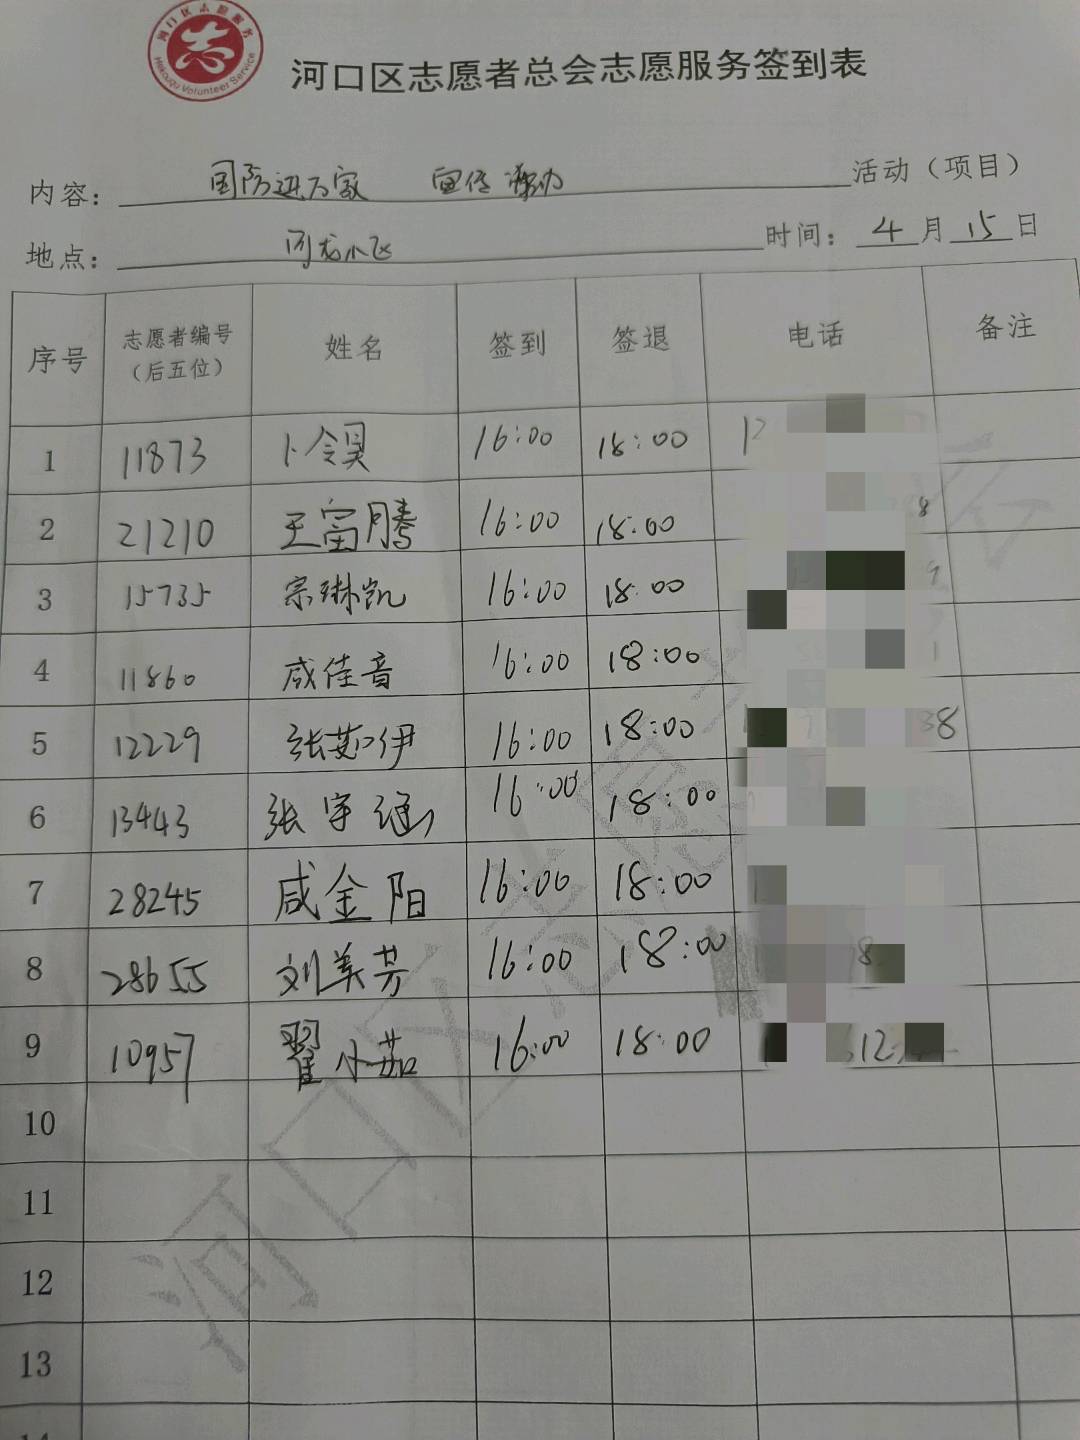 河口区志愿服务
Hekouqu Volunteer Service
河口区志愿者总会志愿服务签到表
内容： 国防进万家 宣传活动 活动（项目）
地点： 河龙小区 时间： 4 月 15 日
序号 志愿者编号（后五位） 姓名 签到 签退 电话 备注
1 11873 卜令昊 16:00 18:00
2 21210 王富腾 16:00 18:00 8
3 15735 宗琳凯 16:00 18:00 9
4 11860 咸佳音 16:00 18:00 1
5 12229 张茹伊 16:00 18:00 38
6 13443 张宇涵 16:00 18:00
7 28245 咸金阳 16:00 18:00
8 28655 刘美芳 16:00 18:00 8
9 10957 翟小茹 16:00 18:00 12
10
11
12
13
河口区志愿者总会